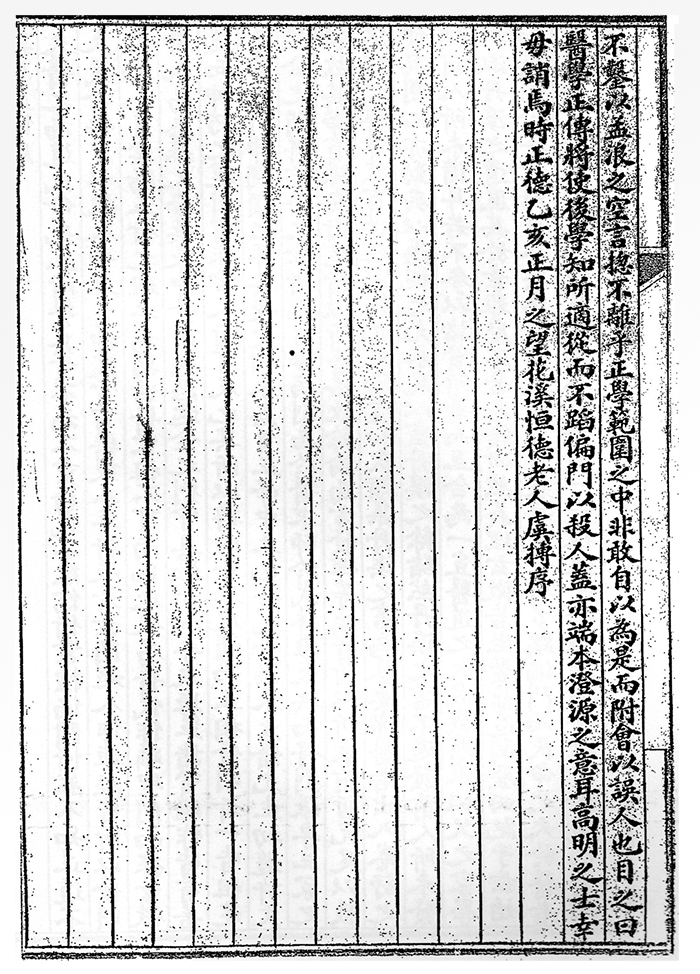 不鑿以孟浪之空言揔不離乎正學範圍之中非敢自以為是而附會以誤人也目之曰
醫學正傳將使後學知所適從而不蹈偏門以殺人蓋亦端本澄源之意耳高明之士幸
毋誚焉時正德乙亥正月之望花溪恒德老人虞摶序